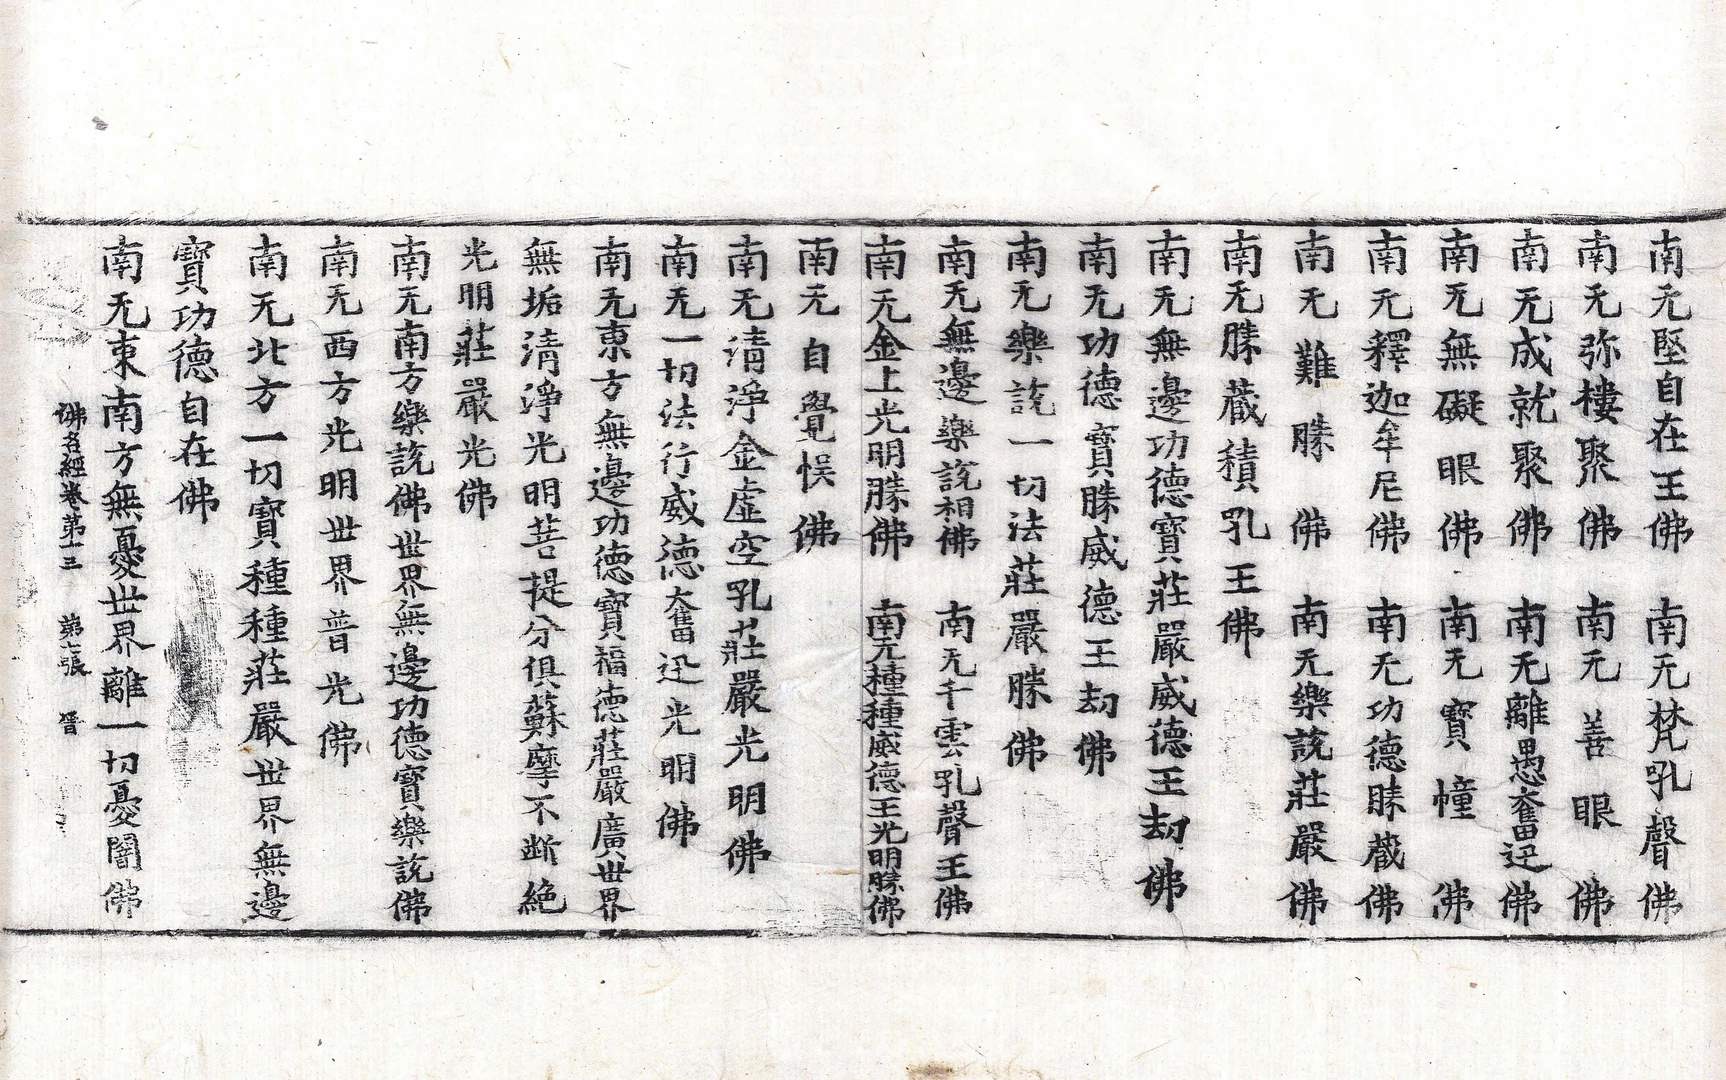 南无堅自在王佛　南无梵吼聲佛
南无弥樓聚佛　南无善眼佛
南无成就聚佛　南无離愚奮迅佛
南无無礙眼佛　南无寶幢佛
南无釋迦牟尼佛　南无功德勝藏佛
南无難勝佛　南无樂說莊嚴佛
南无勝藏積吼王佛
南无無邊功德寶莊嚴威德王劫佛
南无功德寶勝威德王劫佛
南无樂說一切法莊嚴勝佛
南无無邊樂說相佛　南无千雲吼聲王佛
南无金上光明勝佛　南无種種威德王光明勝佛
南无自覺悮佛
南无清淨金虛空吼莊嚴光明佛
南无一切法行威德奮迅光明佛
南无東方無邊功德寶福德莊嚴廣世界
無垢清淨光明菩提分俱蘇摩不断絶
光明莊嚴光佛
南无南方樂說佛世界無邊功德寶樂說佛
南无西方光明世界普光佛
南无北方一切寶種種莊嚴世界無邊
寶功德自在佛
南无東南方無憂世界離一切憂闇佛
佛名經卷第十三　第七張　晉